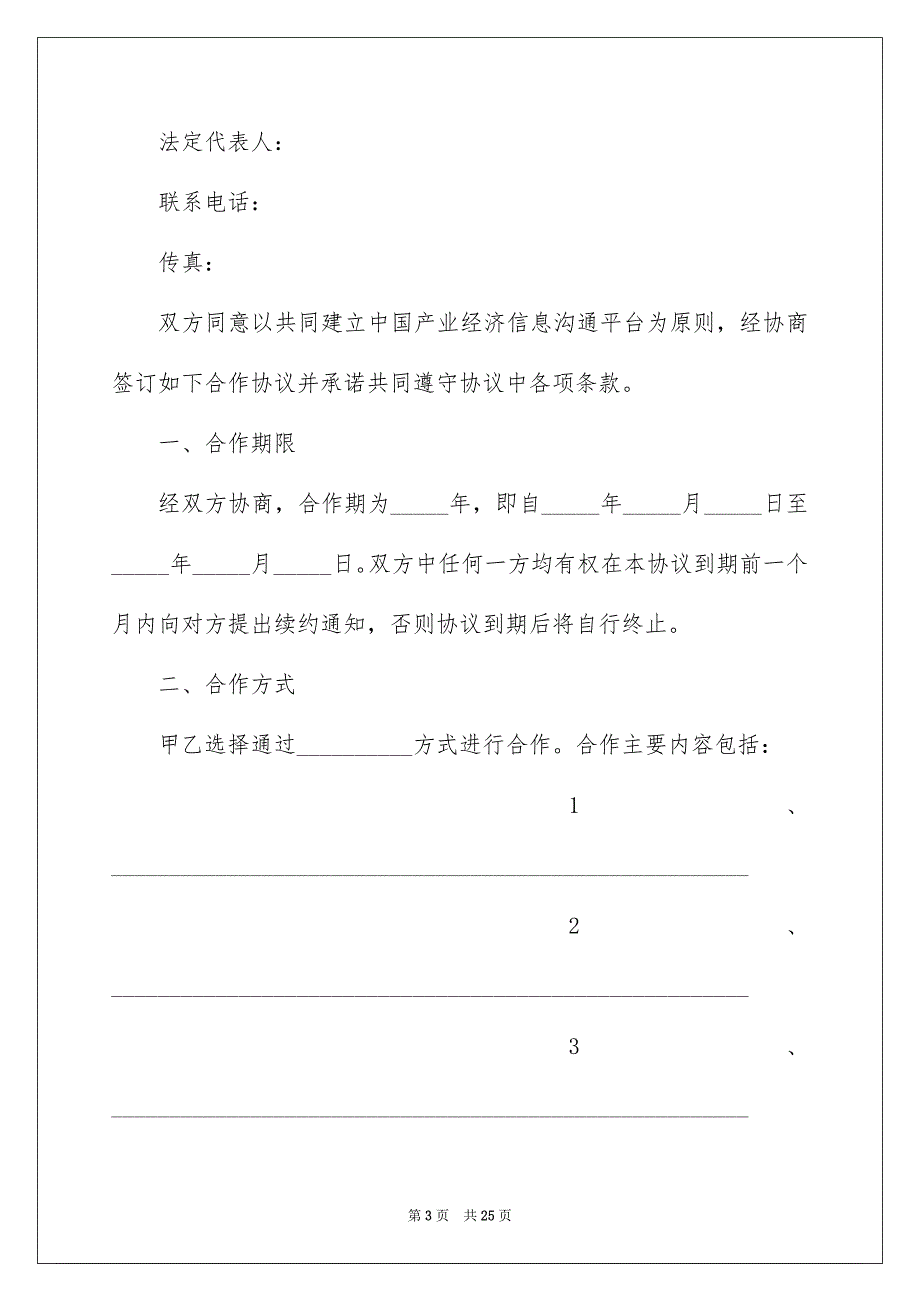 法定代表人：
联系电话：
传真：
双方同意以共同建立中国产业经济信息沟通平台为原则，经协商
签订如下合作协议并承诺共同遵守协议中各项条款。
一、合作期限
经双方协商，合作期为_____年，即自_____年_____月_____日至
_____年_____月_____日。双方中任何一方均有权在本协议到期前一个
月内向对方提出续约通知，否则协议到期后将自行终止。
二、合作方式
甲乙选择通过__________方式进行合作。合作主要内容包括：
1 、
_______________________________________________________
2 、
_______________________________________________________
3 、
_______________________________________________________
第 3 页 共 25 页